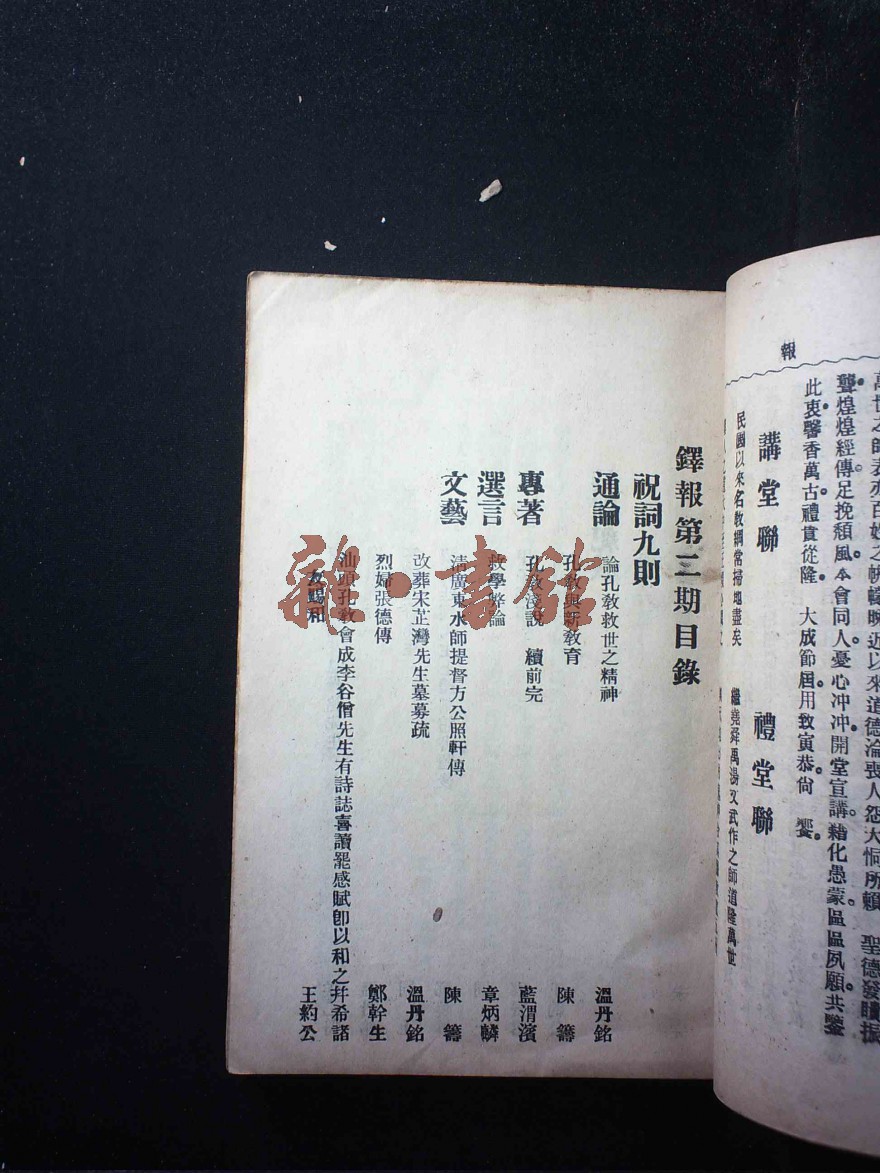 萬世之師表亦百姓之帡幪晚近以來道德淪喪人怨大恫所賴 聖德發聵振
聾煌煌經傳足挽頹風本會同人憂心冲冲開堂宣講藉化愚蒙區區夙願共鑒
此衷馨香萬古禮貫從隆 大成節屆用致寅恭尙 饗
報
講堂聯
民國以來名敎綱常掃地盡矣
禮堂聯
繼堯舜禹湯文武作之師道隆萬世
鐸報第二期目錄
祝詞九則
通論
論孔敎救世之精神 溫丹銘
孔敎與新敎育 陳籌
專著
孔敎淺說 續前完 藍渭濱
選言
救學弊論 章炳麟
文藝
淸廣東水師提督方公照軒傳 陳籌
改葬宋芷灣先生墓募疏 溫丹銘
烈婦張德傳 鄭幹生
汕頭孔敎會成李谷僧先生有詩誌喜讀罷感賦卽以和之幷希諸
友賜和 王約公
雜·書館